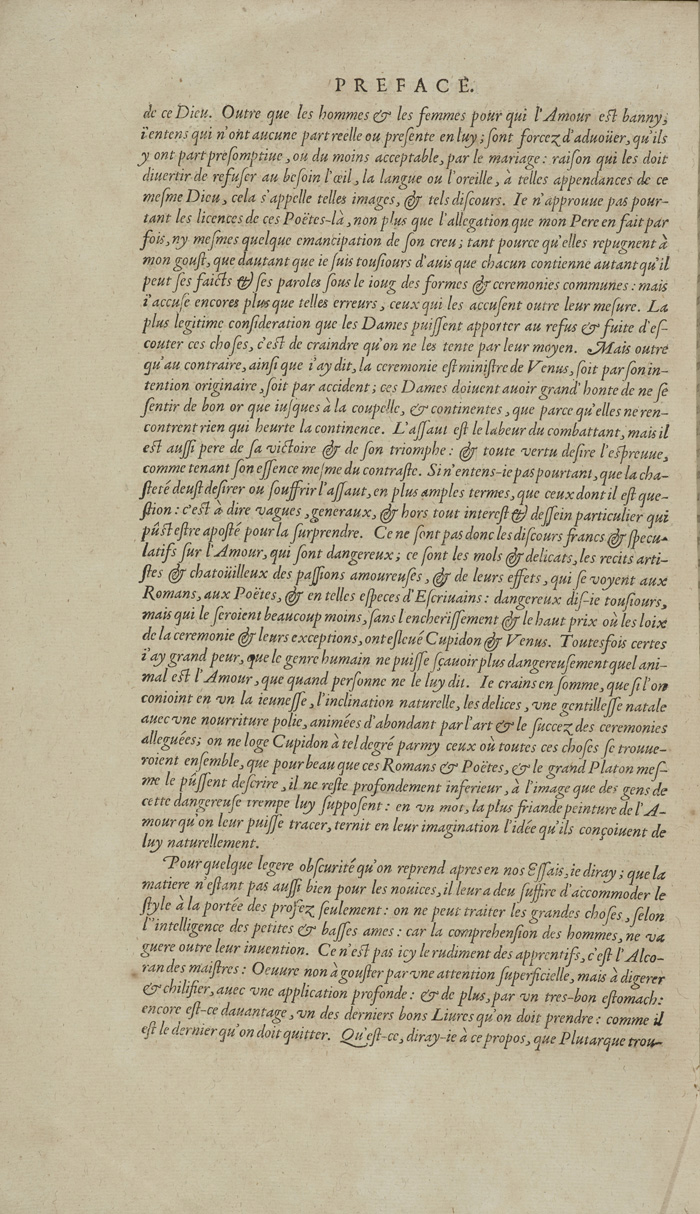 PREFACE.
de ce Dieu. Outre que les hommes & les femmes pour qui l'Amour est banny,
i'entens qui n'ont aucune part reelle ou presente en luy; sont forcez d'aduoüer, qu'ils
y ont part presomptiue, ou du moins acceptable, par le mariage: raison qui les doit
diuertir de refuser au besoin l'œil, la langue ou l'oreille, à telles appendances de ce
mesme Dieu, cela s'appelle telles images, & tels discours. Ie n'approuue pas pour-
tant les licences de ces Poëtes-là, non plus que l'allegation que mon Pere en fait par
fois, ny mesmes quelque emancipation de son creu; tant pource qu'elles repugnent à
mon goust, que dautant que ie suis tousiours d'auis que chacun contienne autant qu'il
peut ses faicts & ses paroles sous le ioug des formes & ceremonies communes: mais
i'accuse encores plus que telles erreurs, ceux qui les accusent outre leur mesure. La
plus legitime consideration que les Dames puissent apporter au refus & fuite d'es-
couter ces choses, c'est de craindre qu'on ne les tente par leur moyen. Mais outre
qu'au contraire, ainsi que i'ay dit, la ceremonie est ministre de Venus, soit par son in-
tention originaire, soit par accident; ces Dames doiuent auoir grand' honte de ne se
sentir de bon or que iusques à la coupelle, & continentes, que parce qu'elles ne ren-
contrent rien qui heurte la continence. L'assaut est le labeur du combattant, mais il
est aussi pere de sa victoire & de son triomphe: & toute vertu desire l'espreuue,
comme tenant son essence mesme du contraste. Si n'entens-ie pas pourtant, que la cha-
steté deust desirer ou souffrir l'assaut, en plus amples termes, que ceux dont il est que-
stion: c'est à dire vagues, generaux, & hors tout interest & dessein particulier qui
pûst estre aposté pour la surprendre. Ce ne sont pas donc les discours francs & specu-
latifs sur l'Amour, qui sont dangereux; ce sont les mols & delicats, les recits arti-
stes & chatoüilleux des passions amoureuses, & de leurs effets, qui se voyent aux
Romans, aux Poëtes, & en telles especes d'Escriuains: dangereux dis-ie tousiours,
mais qui le seroient beaucoup moins, sans l'encherissement & le haut prix où les loix
de la ceremonie & leurs exceptions, ont esleué Cupidon & Venus. Toutesfois certes
i'ay grand peur, que le genre humain ne puisse sçauoir plus dangereusement quel ani-
mal est l'Amour, que quand personne ne le luy dit. Ie crains en somme, que si l'on
conioint en vn la ieunesse, l'inclination naturelle, les delices, vne gentillesse natale
auec vne nourriture polie, animées d'abondant par l'art & le succez des ceremonies
alleguées; on ne loge Cupidon à tel degré parmy ceux où toutes ces choses se trouue-
roient ensemble, que pour beau que ces Romans & Poëtes, & le grand Platon mes-
me le pûssent descrire, il ne reste profondement inferieur, à l'image que des gens de
cette dangereuse trempe luy supposent: en vn mot, la plus friande peinture de l'A-
mour qu'on leur puisse tracer, ternit en leur imagination l'idée qu'ils conçoiuent de
luy naturellement.
Pour quelque legere obscurité qu'on reprend apres en nos Essais, ie diray; que la
matiere n'estant pas aussi bien pour les nouices, il leur a deu suffire d'accommoder le
style à la portée des profez seulement: on ne peut traiter les grandes choses, selon
l'intelligence des petites & basses ames: car la comprehension des hommes, ne va
guere outre leur inuention. Ce n'est pas icy le rudiment des apprentifs, c'est l'Alco-
ran des maistres: Oeuure non à gouster par vne attention superficielle, mais à digerer
& chilifier, auec vne application profonde: & de plus, par vn tres-bon estomach:
encore est-ce dauantage, vn des derniers bons Liures qu'on doit prendre: comme il
est le dernier qu'on doit quitter. Qu'est-ce, diray-ie à ce propos, que Plutarque trou-